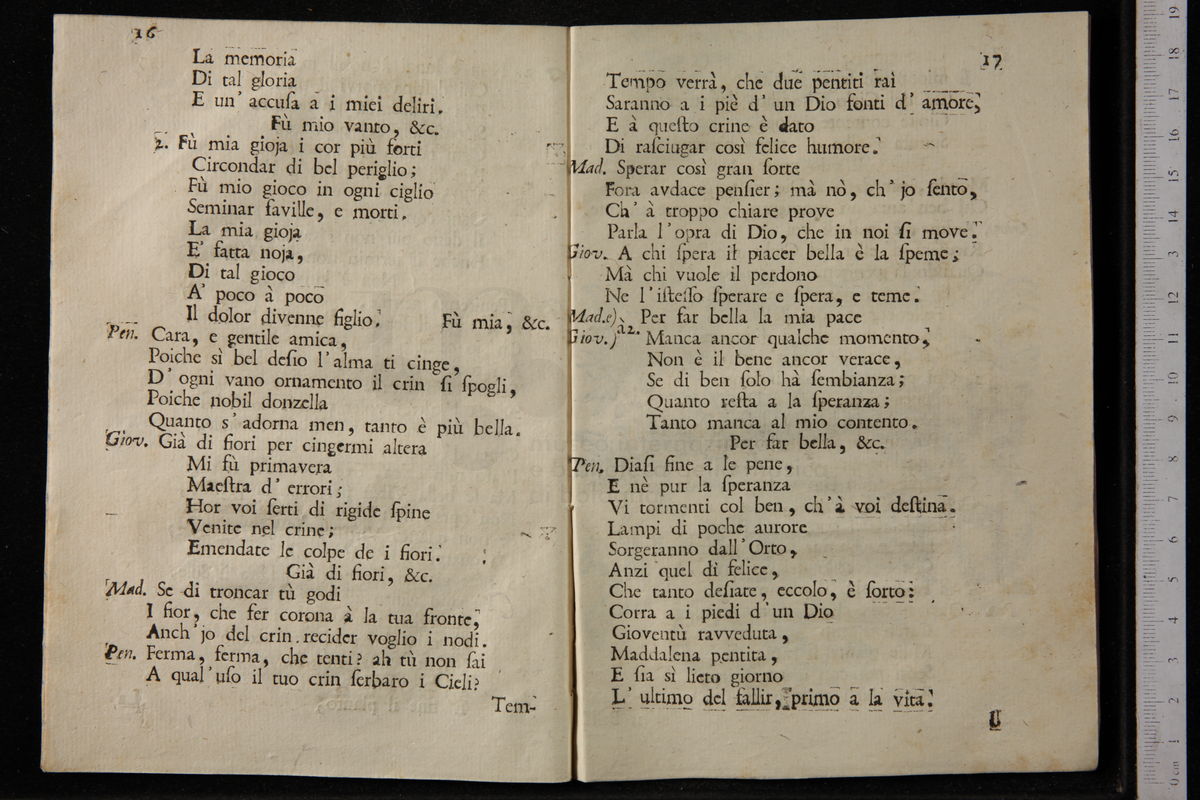 16
La memoria
Di tal gloria
E un' accuſa a i miei deliri.
Fù mio vanto, &c.
2. Fù mia gioja i cor più forti
Circondar di bel periglio;
Fù mio gioco in ogni ciglio
Seminar faville, e morti.
La mia gioja
E' fatta noja,
Di tal gioco
A' poco à poco
Il dolor divenne figlio. Fù mia, &c.
Pen. Cara, e gentile amica,
Poiche sì bel deſio l'alma ti cinge,
D' ogni vano ornamento il crin ſi ſpogli,
Poiche nobil donzella
Quanto s' adorna men, tanto è più bella.
Giov. Già di fiori per cingermi altera
Mi fù primavera
Maeſtra d' errori;
Hor voi ſerti di rigide ſpine
Venite nel crine;
Emendate le colpe de i fiori.
Già di fiori, &c.
Mad. Se di troncar tù godi
I fior, che fer corona à la tua fronte,
Anch' jo del crin recider voglio i nodi.
Pen. Ferma, ferma, che tenti? ah tù non ſai
A qual' uſo il tuo crin ſerbaro i Cieli?
Tem-
17
Tempo verrà, che due pentiti rai
Saranno a i piè d' un Dio fonti d' amore,
E à queſto crine è dato
Di raſciugar così felice humore.
Mad. Sperar così gran ſorte
Fora avdace penſier; mà nò, ch' jo ſento,
Ch' à troppo chiare prove
Parla l'opra di Dio, che in noi ſi move.
Giov. A chi ſpera il piacer bella è la ſpeme;
Mà chi vuole il perdono
Ne l'iſteſſo ſperare e ſpera, e teme.
Mad. e) Per far bella la mia pace
Giov. ) a2. Manca ancor qualche momento,
Non è il bene ancor verace,
Se di ben ſolo hà ſembianza;
Quanto reſta a la ſperanza;
Tanto manca al mio contento.
Per far bella, &c.
Pen. Diaſi fine a le pene,
E nè pur la ſperanza
Vi tormenti col ben, ch'à voi deſtina.
Lampi di poche aurore
Sorgeranno dall'Orto,
Anzi quel dì felice,
Che tanto deſiate, eccolo, è ſorto:
Corra a i piedi d'un Dio
Gioventù ravveduta,
Maddalena pentita,
E ſia sì lieto giorno
L' ultimo del fallir, primo a la vita.